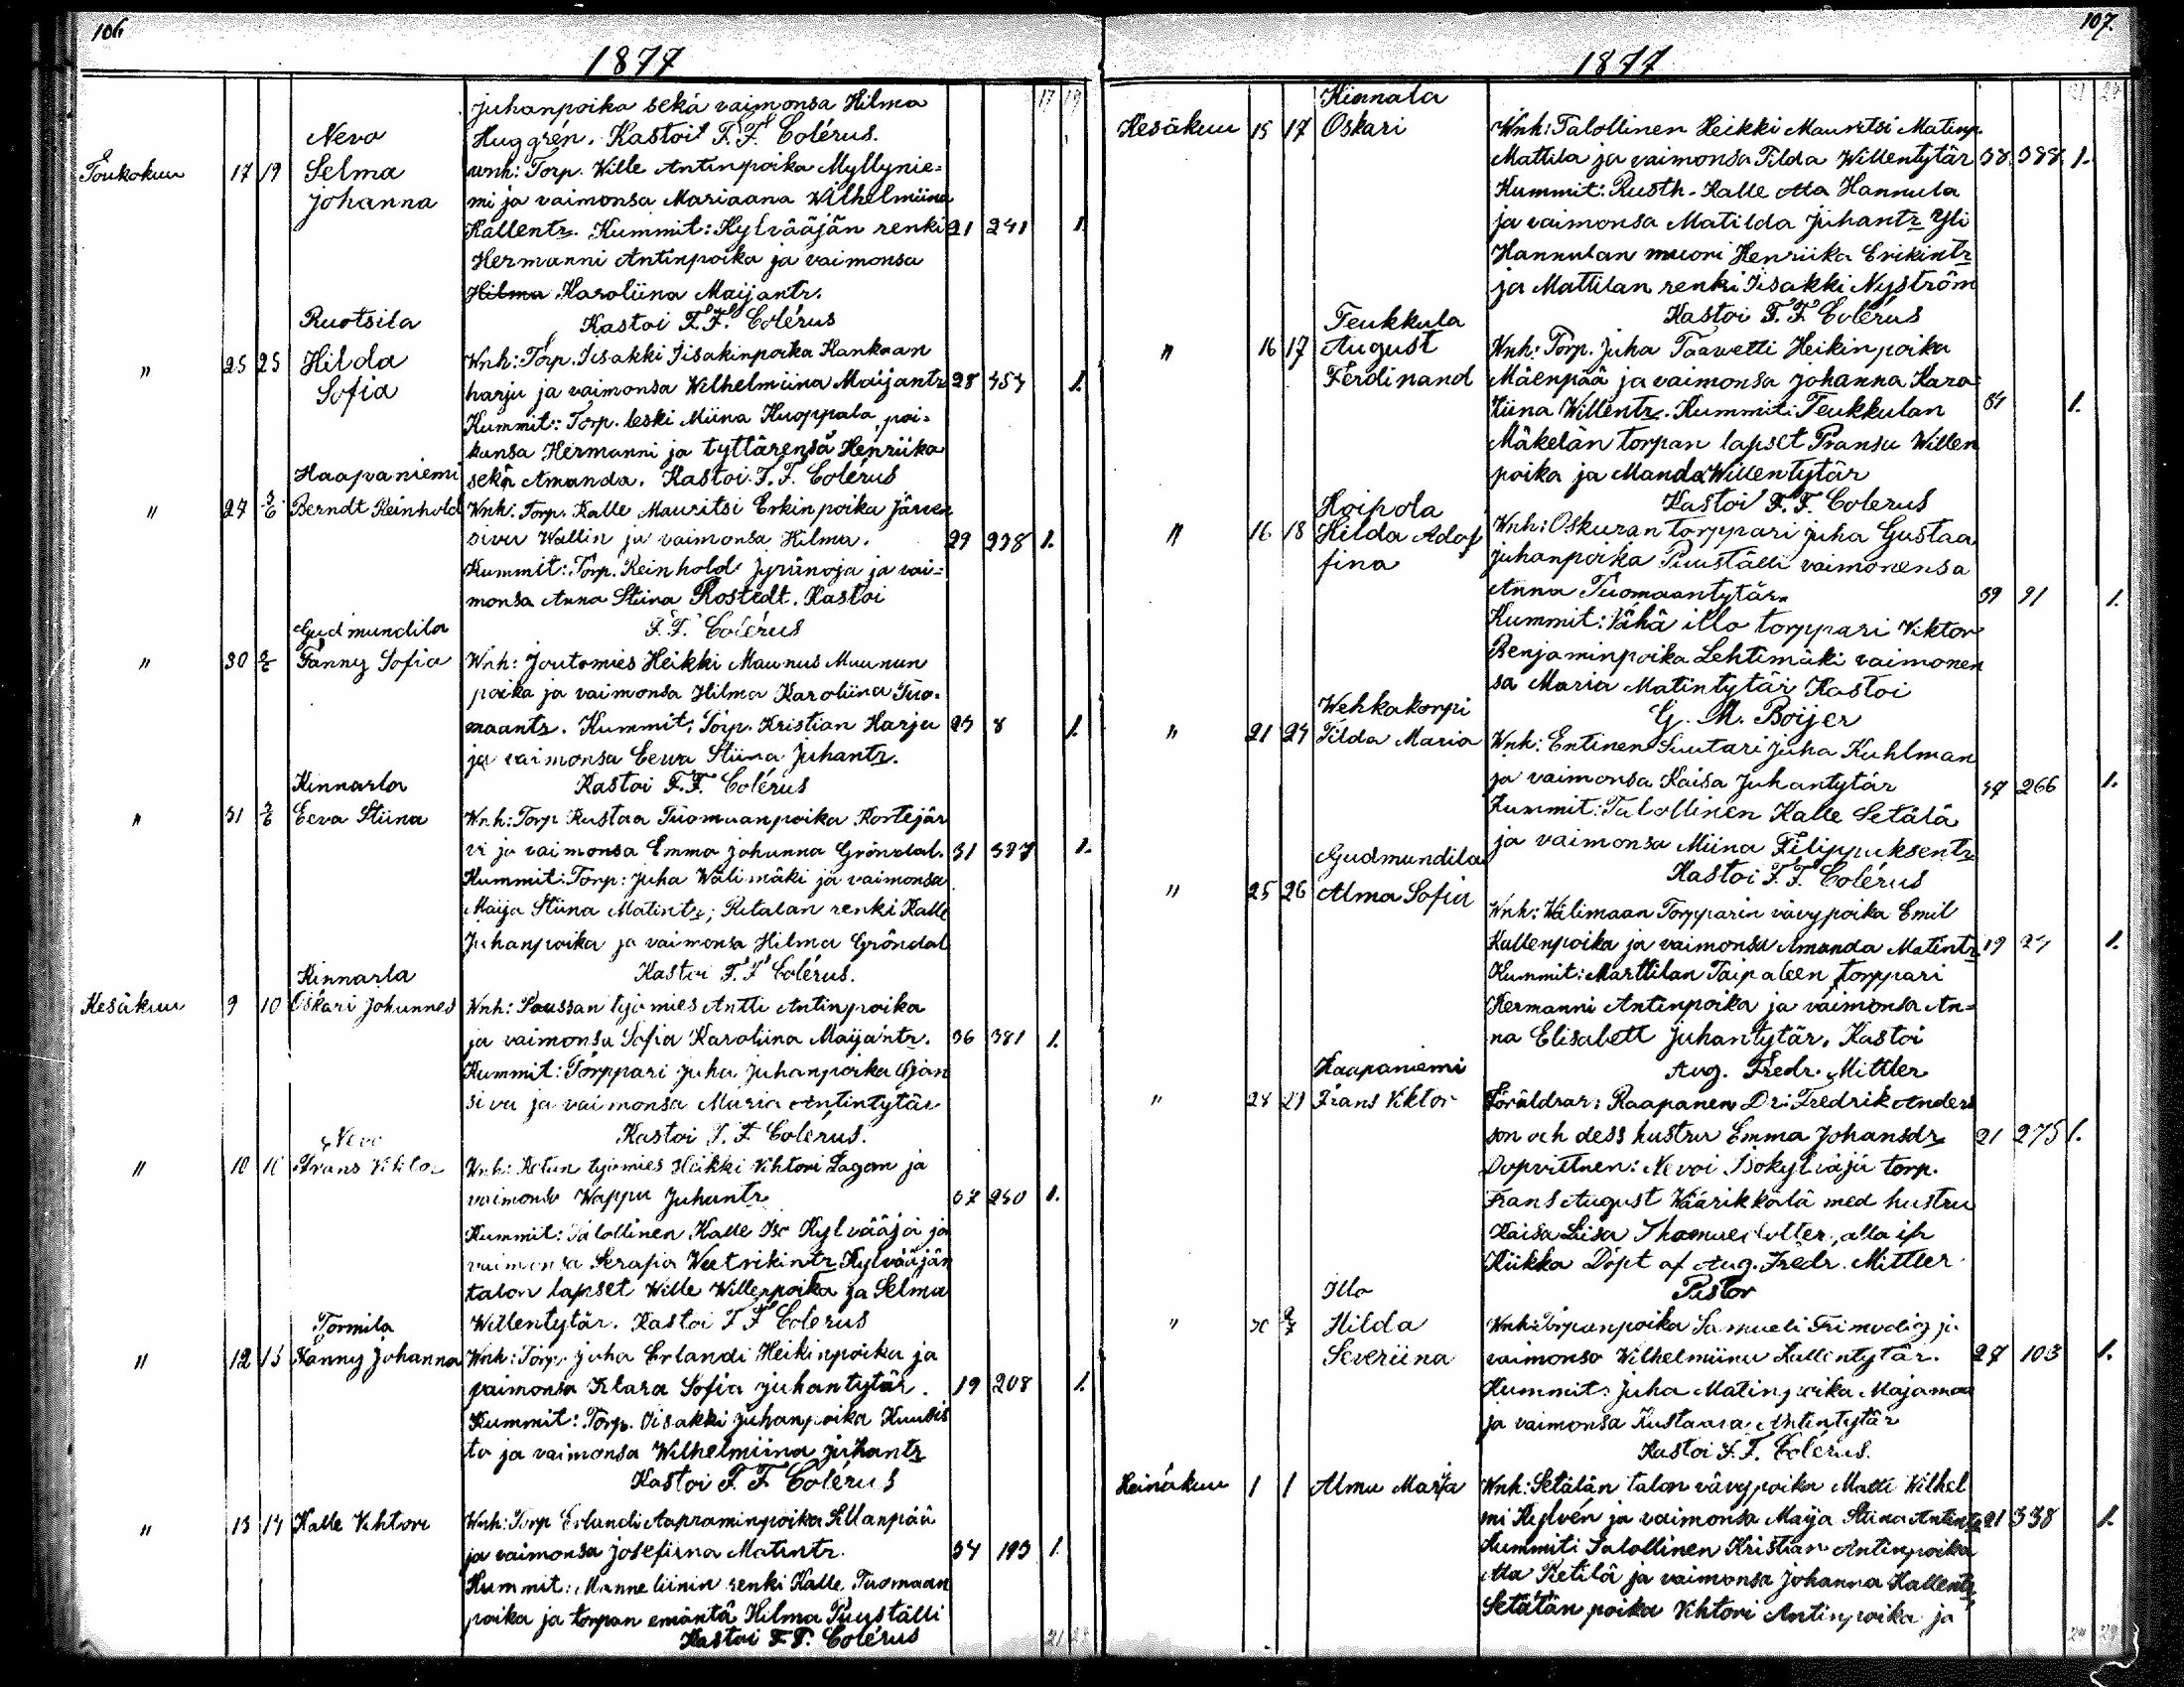 106
1877
17 19
juhanpoika sekä vaimonsa Hilma
Nevo Huggrén. Kastoi F.F. Colérus.
Toukokuu 17 19 Selma wnh: Torp. Wille Antinpoika Myllynie=
Johanna mi ja vaimonsa Mariaana Wilhelmiina
Kallentr. Kummit: Kylvääjän renki 21 241 1.
Hermanni Antinpoika ja vaimonsa
Hilma Karoliina Maijantr.
Ruotsila Kastoi F.F. Colérus
" 25 25 Hilda Wnh: Torp. Iisakki Iisakinpoika Kankaan
Sofia harju ja vaimonsa Wilhelmiina Maijantr 28 454 1.
Kummit: Torp. leski Miina Kuoppala, poi=
kansa Hermanni ja tyttärensä Henriika
Haapaniemi sekä Amanda. Kastoi F.F. Colérus
" 27 3/6 Berndt Reinhold Wnh: Torp. Kalle Mauritsi Erkinpoika Järven
sivu Wallin ja vaimonsa Hilma. 29 238 1.
Kummit: Torp. Reinhold Jyränoja ja vai=
monsa Anna Stiina Rostedt. Kastoi
Gudmundila F.F. Colérus
" 30 3/6 Fanny Sofia Wnh: Joutomies Heikki Maunus Maunun
poika ja vaimonsa Hilma Karoliina Tuo=
maantr. Kummit: Torp. Kristian Harju 23 8 1.
ja vaimonsa Eeva Stiina Juhantr.
Kinnarla Kastoi F.F. Colérus
" 31 3/6 Eeva Stiina Wnh: Torp Kustaa Tuomaanpoika Kortejär
vi ja vaimonsa Emma Johanna Gröndal. 31 397 1.
Kummit: Torp: Juha Wälimäki ja vaimonsa
Maija Stiina Matintr; Retalan renki Kalle
Juhanpoika ja vaimonsa Hilma Gröndal
Kinnarla Kastoi F.F Colérus.
Kesäkuu 9 10 Oskari Johannes Wnh: Poussan työmies Antti Antinpoika
ja vaimonsa Sofia Karoliina Maijantr. 36 381 1.
Kummit: Torppari Juha Juhanpoika Ojan
sivu ja vaimonsa Maria Antintytär
Nevo Kastoi F. F. Colérus.
" 10 10 Frans Viktor Wnh: Ketun työmies Heikki Vihtori Lagan ja
vaimonsa Wappu Juhantr. 37 250 1.
Kummit: Talollinen Kalle Iso Kylvääjä ja
vaimonsa Serafia Weetrikintr Kylvääjän
talon lapset Wille Willenpoika ja Selma
Tormila Willentytär. Kastoi F F Colérus
" 12 13 Fanny Johanna Wnh: Torp. Juha Erlandi Heikinpoika ja
vaimonsa Klara Sofia Juhantytär. 19 208 1.
Kummit: Torp. Iisakki Juhanpoika Kuusis
to ja vaimonsa Wilhelmiina Juhantr
Kastoi F. F Colérus
" 13 14 Kalle Vihtori Wnh: Torp Erlandi Aapraminpoika Sillanpää
ja vaimonsa Josefiina Matintr. 34 193 1.
Kummit: Manneliinin renki Kalle Tuomaan
poika ja torpan emäntä Hilma Puuställi
Kastoi F.F. Colérus
107.
1877
Kinnala
Kesäkuu 15 17 Oskari Wnh: Talollinen Heikki Mauritsi Matinp.
Mattila ja vaimonsa Tilda Willentytär 38 388 1.
Kummit: Rusth. Kalle Ala Hannula
ja vaimonsa Matilda Juhantr Yli
Hannulan muori Henriika Erikintr
ja Mattilan renki Iisakki Nyström
Teukkula Kastoi F.F. Colérus
" 16 17 August Wnh: Torp. Juha Taavetti Heikinpoika
Ferdinand Mäenpää ja vaimonsa Johanna Karo=
liina Willentr. Kummit: Teukkulan 34 1.
Mäkelän torpan lapset Fransu Willen
poika ja Manda Willentytär
Hoipola Kastoi F.F. Colerus
" 16 18 Hilda Adol Wnh: Oskuran torppari Juha Gustaa
fina Juhanpoika Puuställi vaimonensa
Anna Tuomaantytär. 39 91 1.
Kummit: Vähä illo torppari Viktor
Benjaminpoika Lehtimäki vaimonen
sa Maria Matintytär Kastoi
Wehkakorpi G. M. Boijer
" 21 24 Tilda Maria Wnh: Entinen Suutari Juha Kuhlman
ja vaimonsa Kaisa Juhantytär 37 266 1.
Kummit: Talollinen Kalle Setälä
ja vaimonsa Miina Filippuksentr
Gudmundila Kastoi F.F. Colérus
" 25 26 Alma Sofia Wnh: Välimaan Torpparin vävypoika Emil
Kallenpoika ja vaimonsa Amanda Matintr 19 24 1.
Kummit: Marttilan Taipaleen torppari
Hermanni Antinpoika ja vaimonsa An=
na Elisabett Juhantytär. Kastoi
Haapaniemi Aug. Fredr. Mittler
" 28 29 Frans Viktor Föräldrar: Raapanen Dr: Fredrik Anders
son och dess hustru Emma Johansdr 21 275 1.
Dopvittnen: Nevoi Isokylväjä torp.
Frans August Väärikkälä med hustru
Kaisa Liisa Thomasdotter, alla ifr
Kiikka Döpt af Aug. Fredr. Mittler
Illo Pastor
" 30 2/7 Hilda Wnh: Torpanpoika Samueli Frimodig ja
Severiina vaimonsa Wilhelmiina Kallentytär. 27 103 1.
Kummit: Juha Matinpoika Majamaa
ja vaimonsa Kustaava Antintytär
Kastoi F.F. Colérus.
Heinäkuu 1 1 Alma Maria Wnh: Setälän talon vävypoika Matti Vilhel
mi Kylvén ja vaimonsa Maija Stiina Antintr 21 338 1.
Kummit: Talollinen Kristian Antinpoika
Ala Ketilä ja vaimonsa Johanna Kallentr,
Setälän poika Vihtori Antinpoika ja